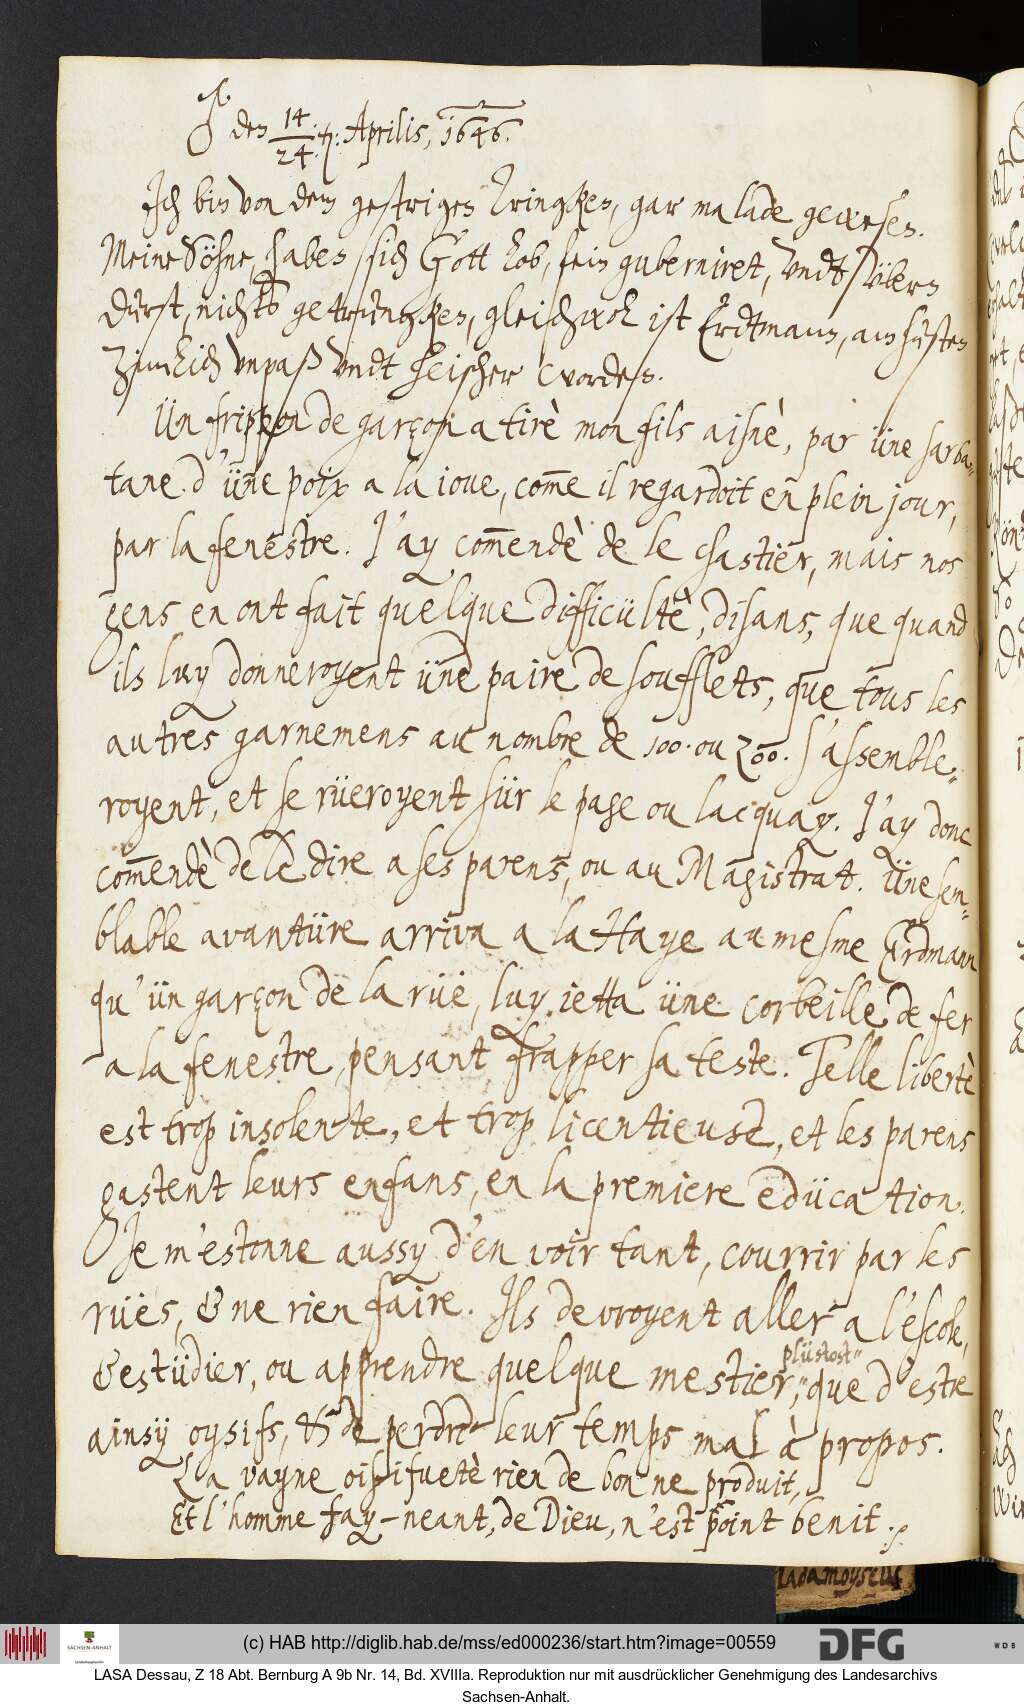 ♂ den 14/24. Aprilis, 1646.
Ich bin von dem gestrigen trincken, gar malade gewesen.
Meine Söhne, haben sich Gott lob, fein guberniret, undt übern
durst, nichts getruncken, gleichwol ist Erdtmann, am husten
zimlich unpaß undt heischer worden.
Ün frippon de garçon a tirè mon fils aisnè, par üne sarba-
tane d'üne poix a la joue, com̅e il regardoit en plein jour,
par la fenestre. J'ay com̅endè de le chastier, mais nos
gens en ont fait quelque difficültè, disans, que quand
ils luy donneroyent üne paire de soufflets, que tous les
autres garnemens au nombre de 100. ou 200. s'assemble-
royent, et se rüeroyent sür le page ou lacquay. J'ay donc
com̅endè de le dire a ses parens, ou au Magistrat. Üne sem-
blable avantüre arriva a la Haye au mesme Erdmann
qu'ün garçon de la rüe, luy jetta üne corbeille de fer
a la fenestre, pensant frapper sa teste. Telle libertè
est trop insolente, et trop licentieuse, et les parens
gastent leurs enfans, en la premiere edücation.
Je m'estonne aussy d'en voir tant, courrir par les
rües, & ne rien faire. Ils devroyent aller a l'escole,
& estüdier, ou apprendre quelque mestier, plüstost que d'estre
ainsy oysifs, & de perdre leur temps mal à propos.
La vayne oisifuetè rien de bon ne produit,
Et l'homme fay-neant, de Dieu, n'est point benit.
Madamoyselle
(c) HAB http://diglib.hab.de/mss/ed000236/start.htm?image=00559
SACHSEN-ANHALT
DFG
WDB
LASA Dessau, Z 18 Abt. Bernburg A 9b Nr. 14, Bd. XVIIIa. Reproduktion nur mit ausdrücklicher Genehmigung des Landesarchivs
Sachsen-Anhalt.